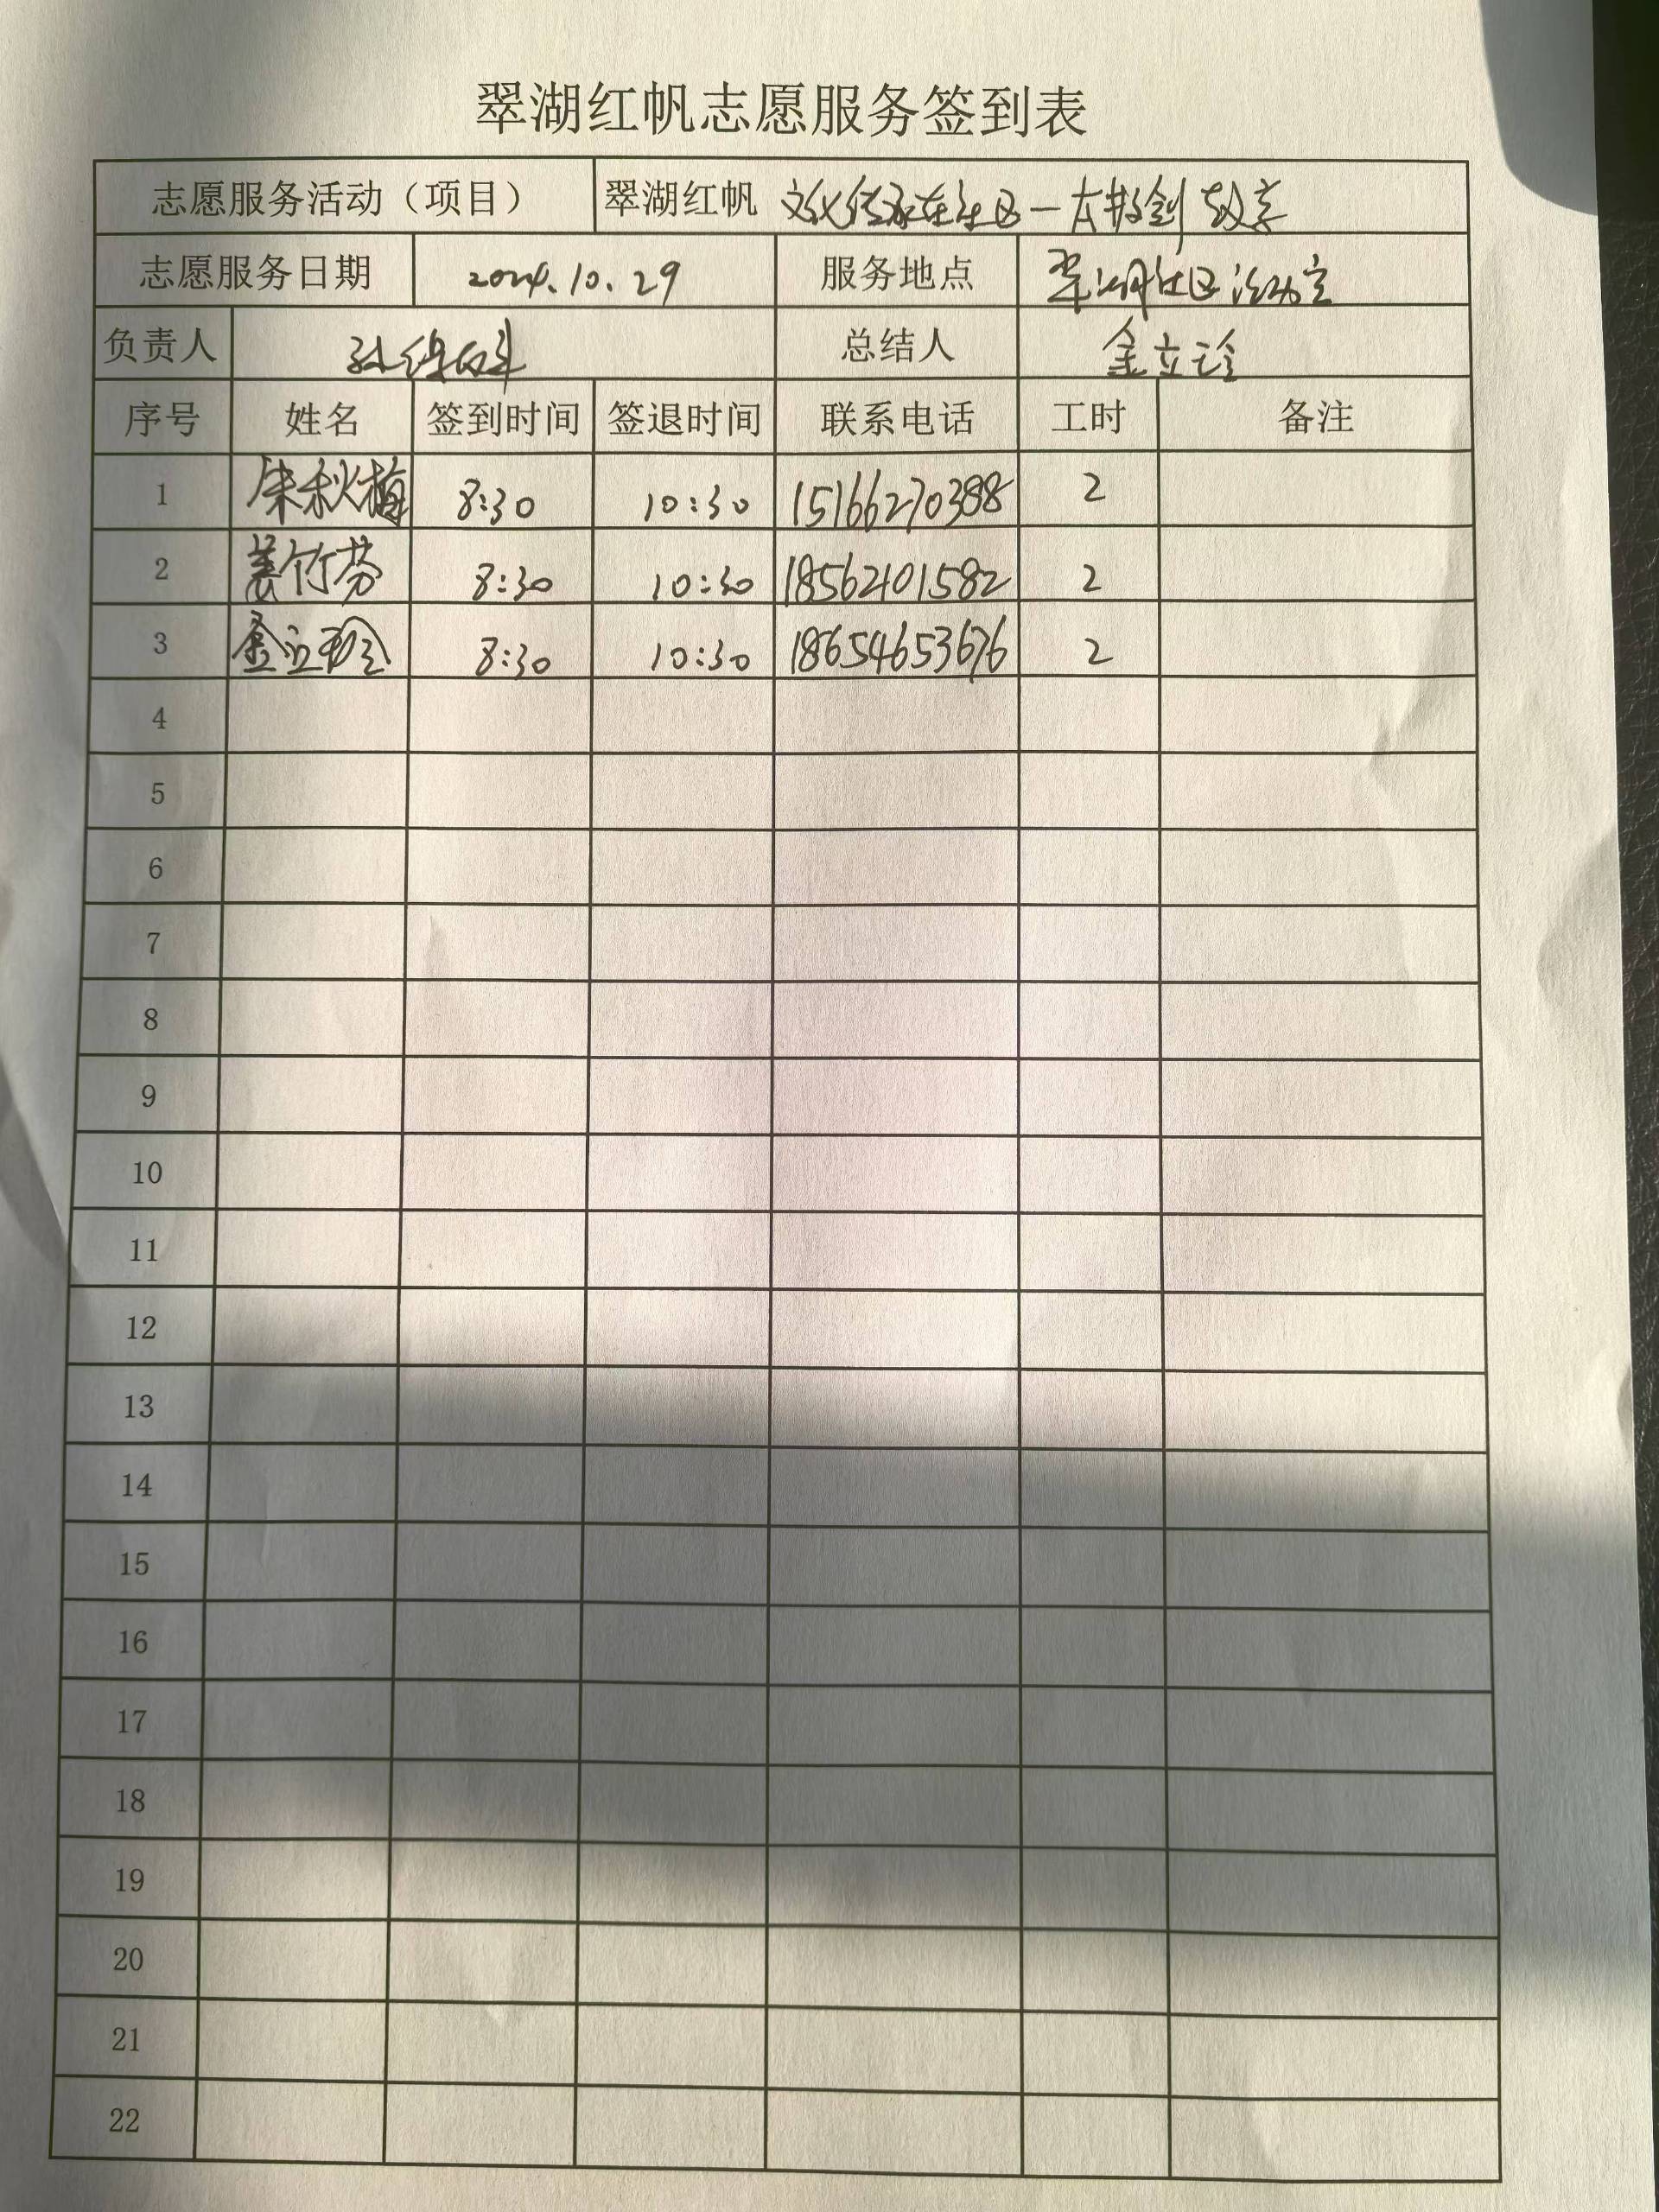 翠湖红帆志愿服务签到表
志愿服务活动（项目） 翠湖红帆 文化传承在社区一太极剑教学
志愿服务日期 2024.10.29 服务地点 翠湖社区活动室
负责人 总结人 金立玲
序号 姓名 签到时间 签退时间 联系电话 工时 备注
1 秋梅 8:30 10:30 15166270388 2
2 姜竹芬 8:30 10:30 18562101582 2
3 金立玲 8:30 10:30 18654653676 2
4
5
6
7
8
9
10
11
12
13
14
15
16
17
18
19
20
21
22